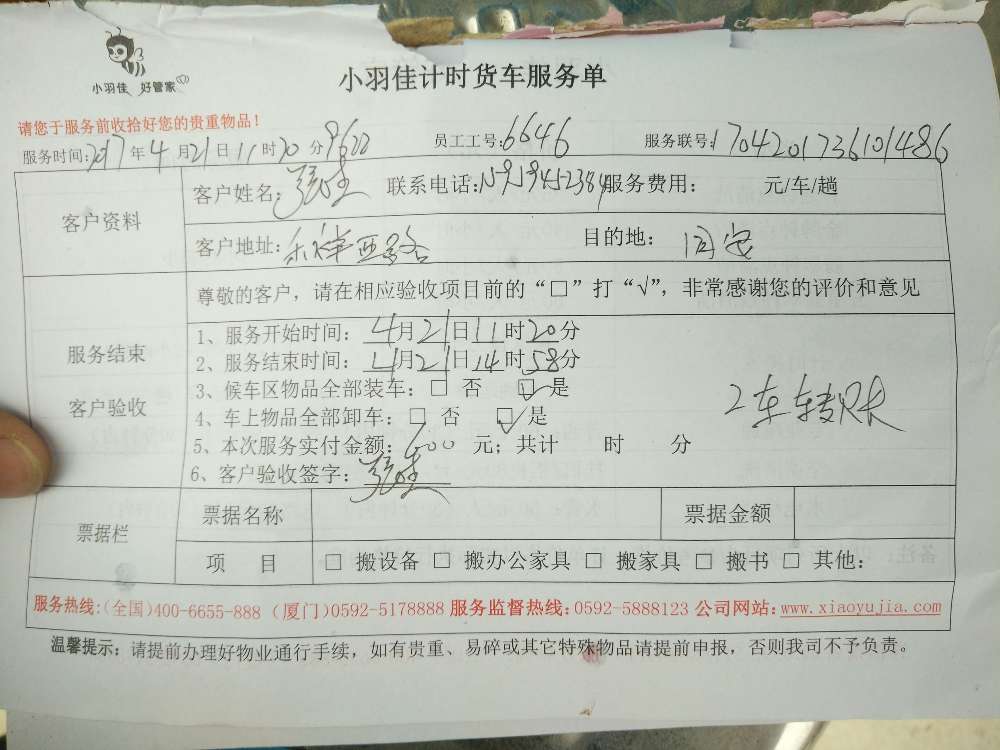 小羽佳 好管家
小羽佳计时货车服务单
请您于服务前收拾好您的贵重物品!
服务时间: 2017年4月21日11时20分 9622 员工工号: 6646 服务联号: 1704201736101486
客户资料
客户姓名: 联系电话: 15919452384 服务费用: 元/车/趟
客户地址: 西路 目的地: 同安
尊敬的客户，请在相应验收项目前的“□”打“√”，非常感谢您的评价和意见
服务结束
客户验收
1、服务开始时间: 4月21日11时20分
2、服务结束时间: 4月21日14时58分
3、候车区物品全部装车: □ 否 ☑ 是
4、车上物品全部卸车: □ 否 ☑ 是
2车转账
5、本次服务实付金额: 600 元; 共计 时 分
6、客户验收签字:
票据栏
票据名称 票据金额
项 目 □ 搬设备 □ 搬办公家具 □ 搬家具 □ 搬书 □ 其他:
服务热线:(全国)400-6655-888 (厦门)0592-5178888 服务监督热线:0592-5888123 公司网站:www.xiaoyujia.com
温馨提示: 请提前办理好物业通行手续，如有贵重、易碎或其它特殊物品请提前申报，否则我司不予负责。